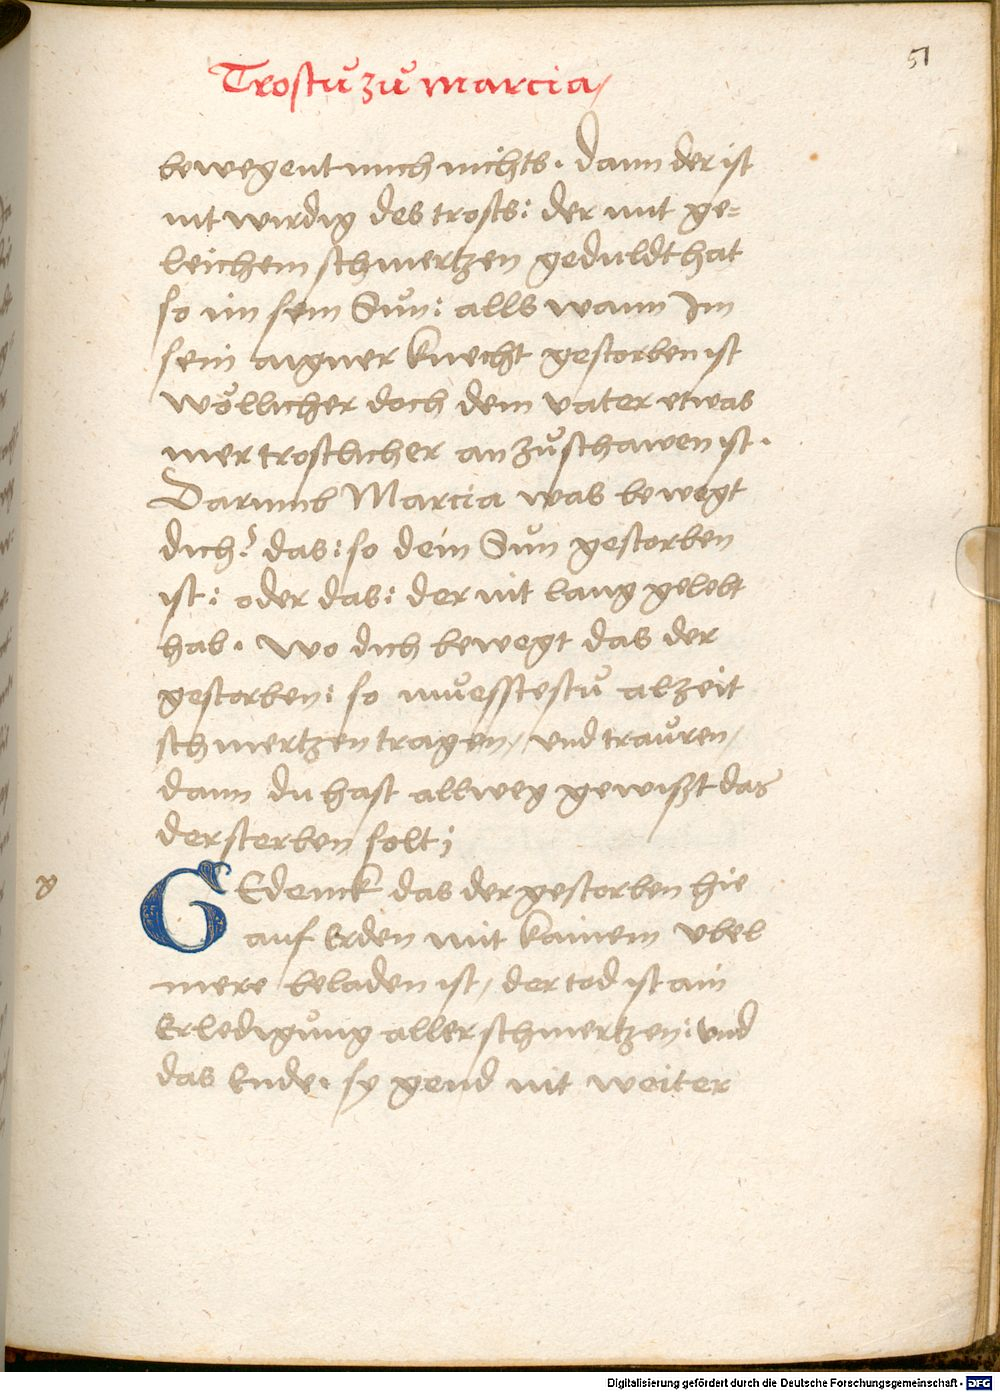 Trostŭ zŭ marcia/
51
bewegent mich nichts. Dann der ist
nit wirdig des trosts: der mit ge-
leichem schmertzen geduldt hat
so im sein Sŭn: alls wann Im
sein aigner knecht gestorben ist
wöllicher doch dem vater etwas
mer trostlicher an zŭ schawen ist.
Darumb Marcia was bewegt
dich? das: so dein Sŭn gestorben
ist: oder das: der nit lang gelebt
hab. Wo dich bewegt das der
gestorben: so mŭesstestŭ alzeit
schmertzen tragen/ vnd traŭren/
dann du hast allweg gewißt das
der sterben solt;
GEdenck das der gestorben hie
auf Erden mit kainem vbel
mere beladen ist/ der tod ist ain
Erledigŭng aller schmertzen: vnd
das Ende. sy gend nit weiter
Digitalisierung gefördert durch die Deutsche Forschungsgemeinschaft - DFG